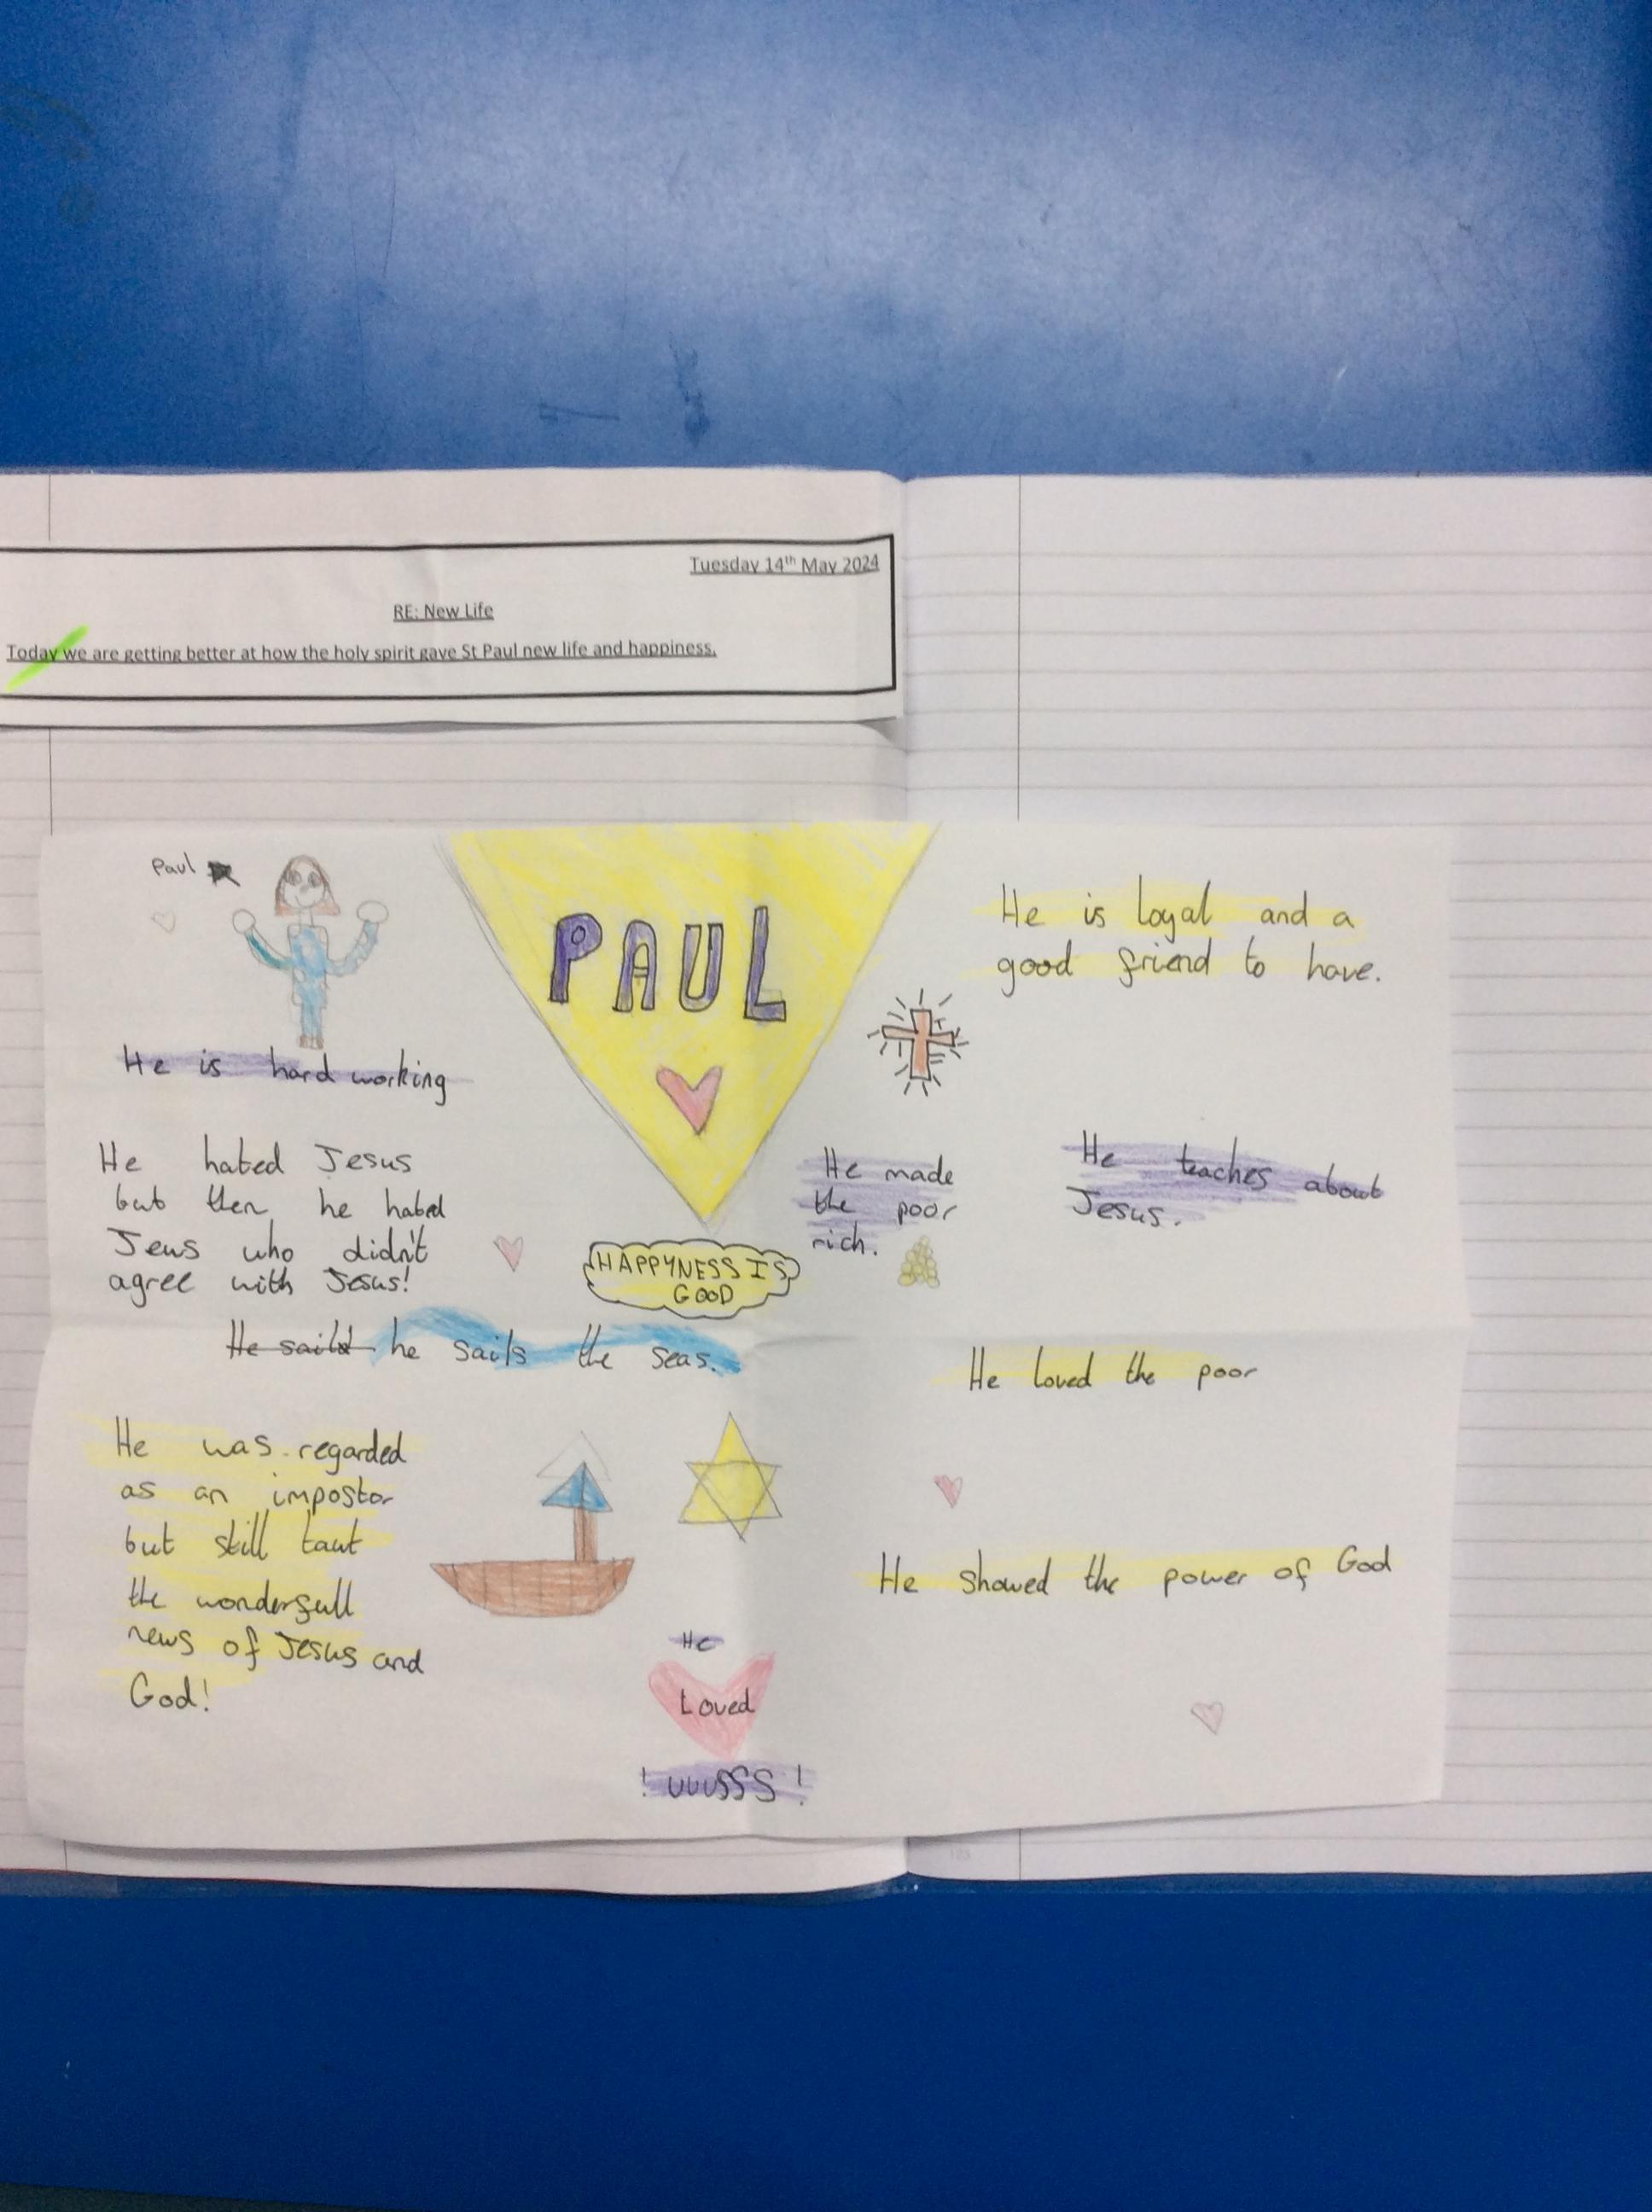 Tuesday 14th May 2024
RE: New Life
Today we are getting better at how the holy spirit gave St Paul new life and happiness.
Paul
PAUL
He is loyal and a
good friend to have.
He is hard working
He hated Jesus
but then he hated
Jews who didn't
agree with Jesus!
He made
the poor
rich.
He teaches about
Jesus.
HAPPYNESS IS
GOOD
He saild he sails the seas.
He loved the poor
He was regarded
as an impostor
but still taut
the wonderfull
news of Jesus and
God!
He showed the power of God
He
Loved
! UUUSSS !